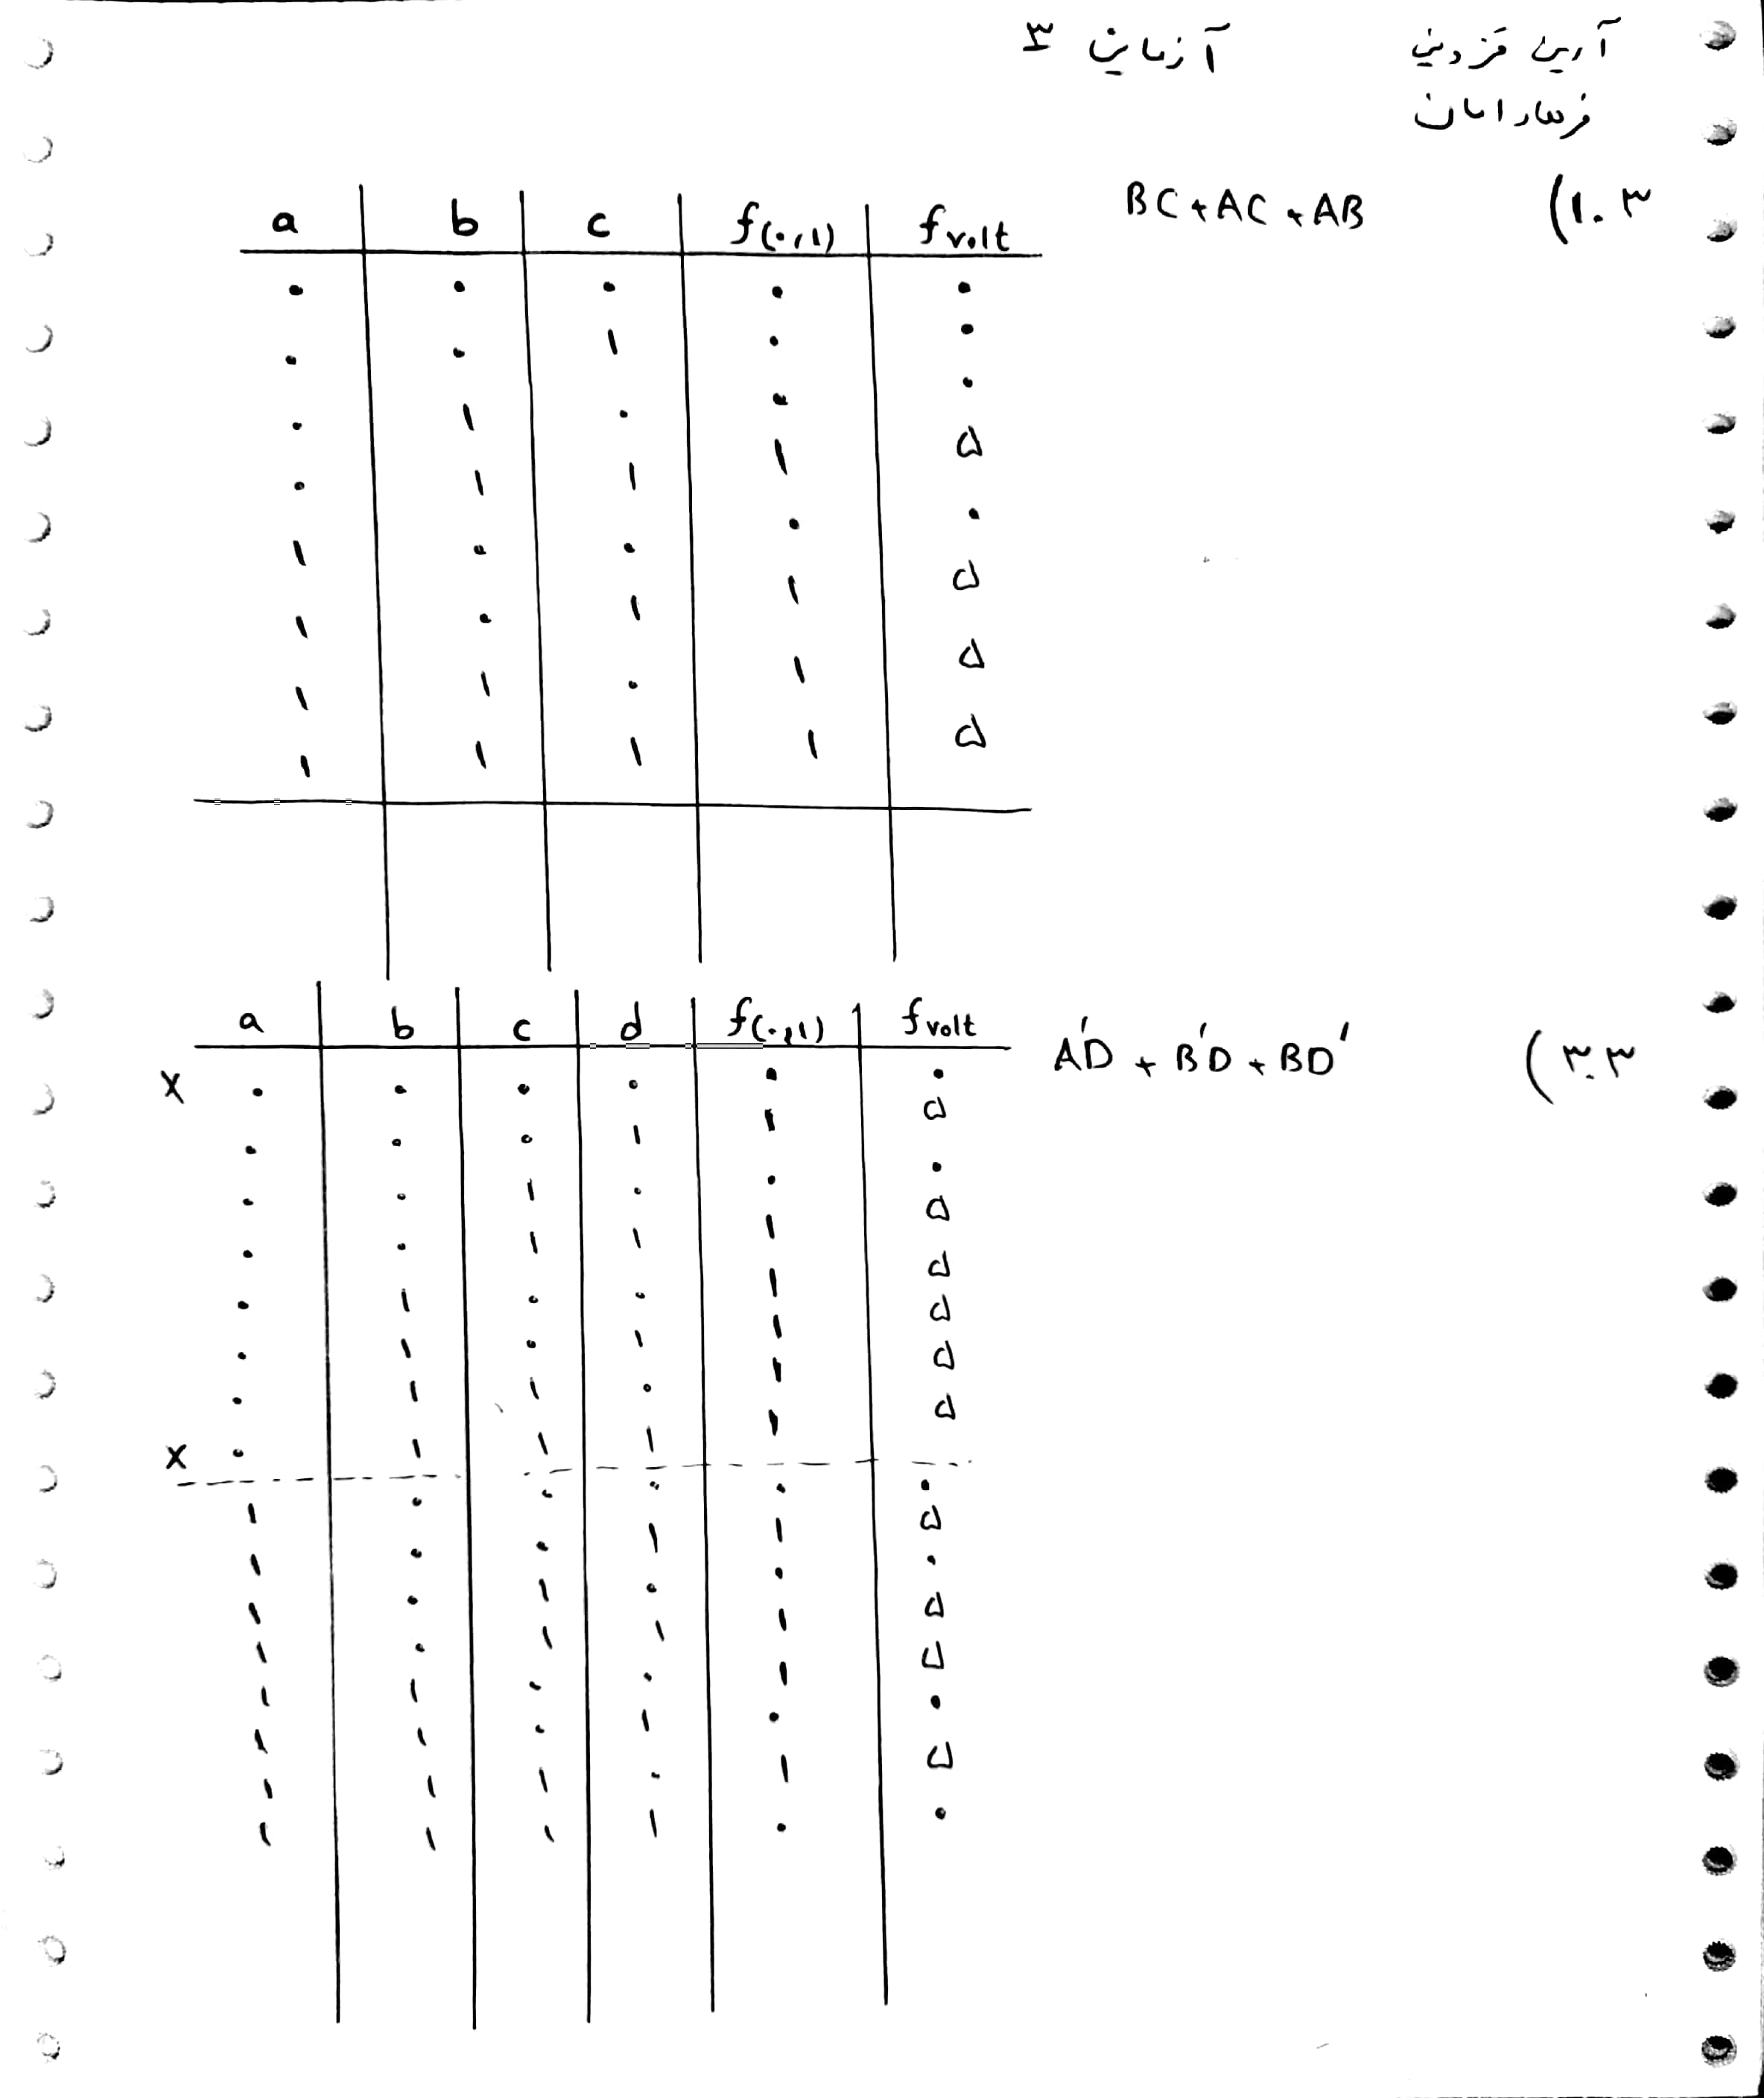 آرین قزوینی آزمایش ۳
فرهاد امان
۱.۳) BC + AC + AB
a b c f(۰,۱) f volt
۰ ۰ ۰ ۰ ۰
۰ ۰ ۱ ۰ ۰
۰ ۱ ۰ ۰ ۰
۰ ۱ ۱ ۱ ۵
۱ ۰ ۰ ۰ ۰
۱ ۰ ۱ ۱ ۵
۱ ۱ ۰ ۱ ۵
۱ ۱ ۱ ۱ ۵
۳.۳) A'D + B'D + BD'
a b c d f(۰,۱) f volt
X ۰ ۰ ۰ ۰ ۰ ۰
۰ ۰ ۰ ۱ ۱ ۵
۰ ۰ ۱ ۰ ۰ ۰
۰ ۰ ۱ ۱ ۱ ۵
۰ ۱ ۰ ۰ ۱ ۵
۰ ۱ ۰ ۱ ۱ ۵
۰ ۱ ۱ ۰ ۱ ۵
X ۰ ۱ ۱ ۱ ۱ ۵
۱ ۰ ۰ ۰ ۰ ۰
۱ ۰ ۰ ۱ ۱ ۵
۱ ۰ ۱ ۰ ۰ ۰
۱ ۰ ۱ ۱ ۱ ۵
۱ ۱ ۰ ۰ ۱ ۵
۱ ۱ ۰ ۱ ۰ ۰
۱ ۱ ۱ ۰ ۱ ۵
۱ ۱ ۱ ۱ ۰ ۰